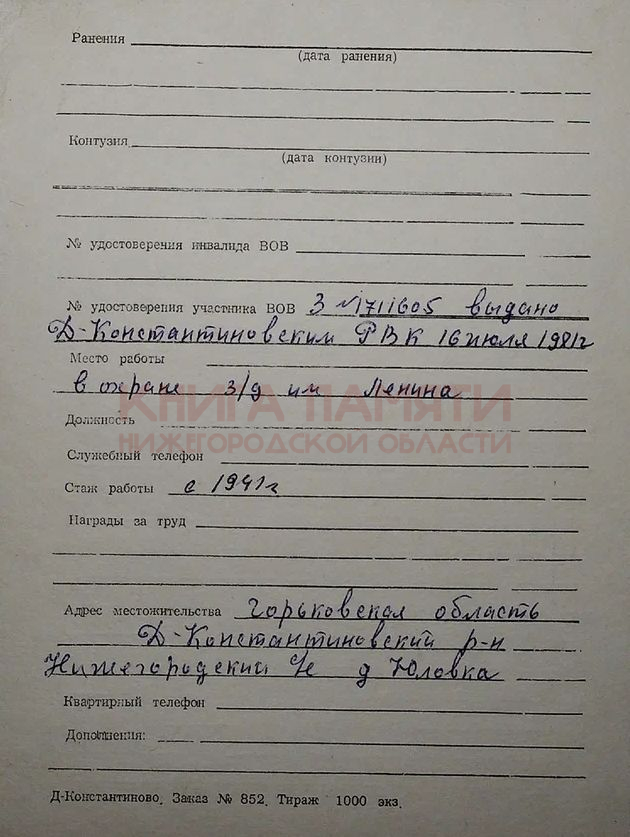 Ранения
(дата ранения)
Контузия
(дата контузии)
№ удостоверения инвалида ВОВ
№ удостоверения участника ВОВ З №1711605 выдано
Д-Константиновским РВК 16 июля 1981г
Место работы
в охране з/д им Ленина
КНИГА ПАМЯТИ
Должность
НИЖЕГОРОДСКОЙ ОБЛАСТИ
Служебный телефон
Стаж работы с 1941г
Награды за труд
Адрес местожительства Горьковская область
Д-Константиновский р-н
Нижегородский д Юловка
Квартирный телефон
Дополнения:
Д-Константиново. Заказ № 852. Тираж 1000 экз.